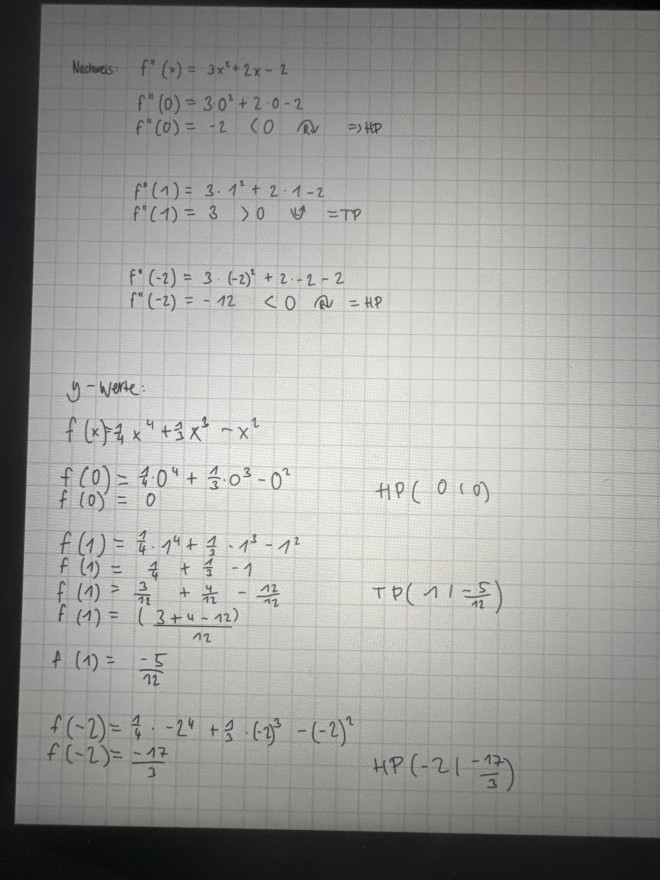 Nachweis: f''(x) = 3x² + 2x - 2
f''(0) = 3·0² + 2·0 - 2
f''(0) = -2 < 0 => HP
f''(1) = 3·1² + 2·1 - 2
f''(1) = 3 > 0 = TP
f''(-2) = 3·(-2)² + 2·-2 - 2
f''(-2) = -12 < 0 = HP
y-Werte:
f(x) = 1/4 x⁴ + 1/3 x³ - x²
f(0) = 1/4·0⁴ + 1/3·0³ - 0² HP( 0 | 0)
f(0) = 0
f(1) = 1/4·1⁴ + 1/3·1³ - 1²
f(1) = 1/4 + 1/3 - 1
f(1) = 3/12 + 4/12 - 12/12 TP( 1 | -5/12)
f(1) = (3+4-12)/12
f(1) = -5/12
f(-2) = 1/4·-2⁴ + 1/3·(-2)³ - (-2)²
f(-2) = -17/3 HP(-2 | -17/3)